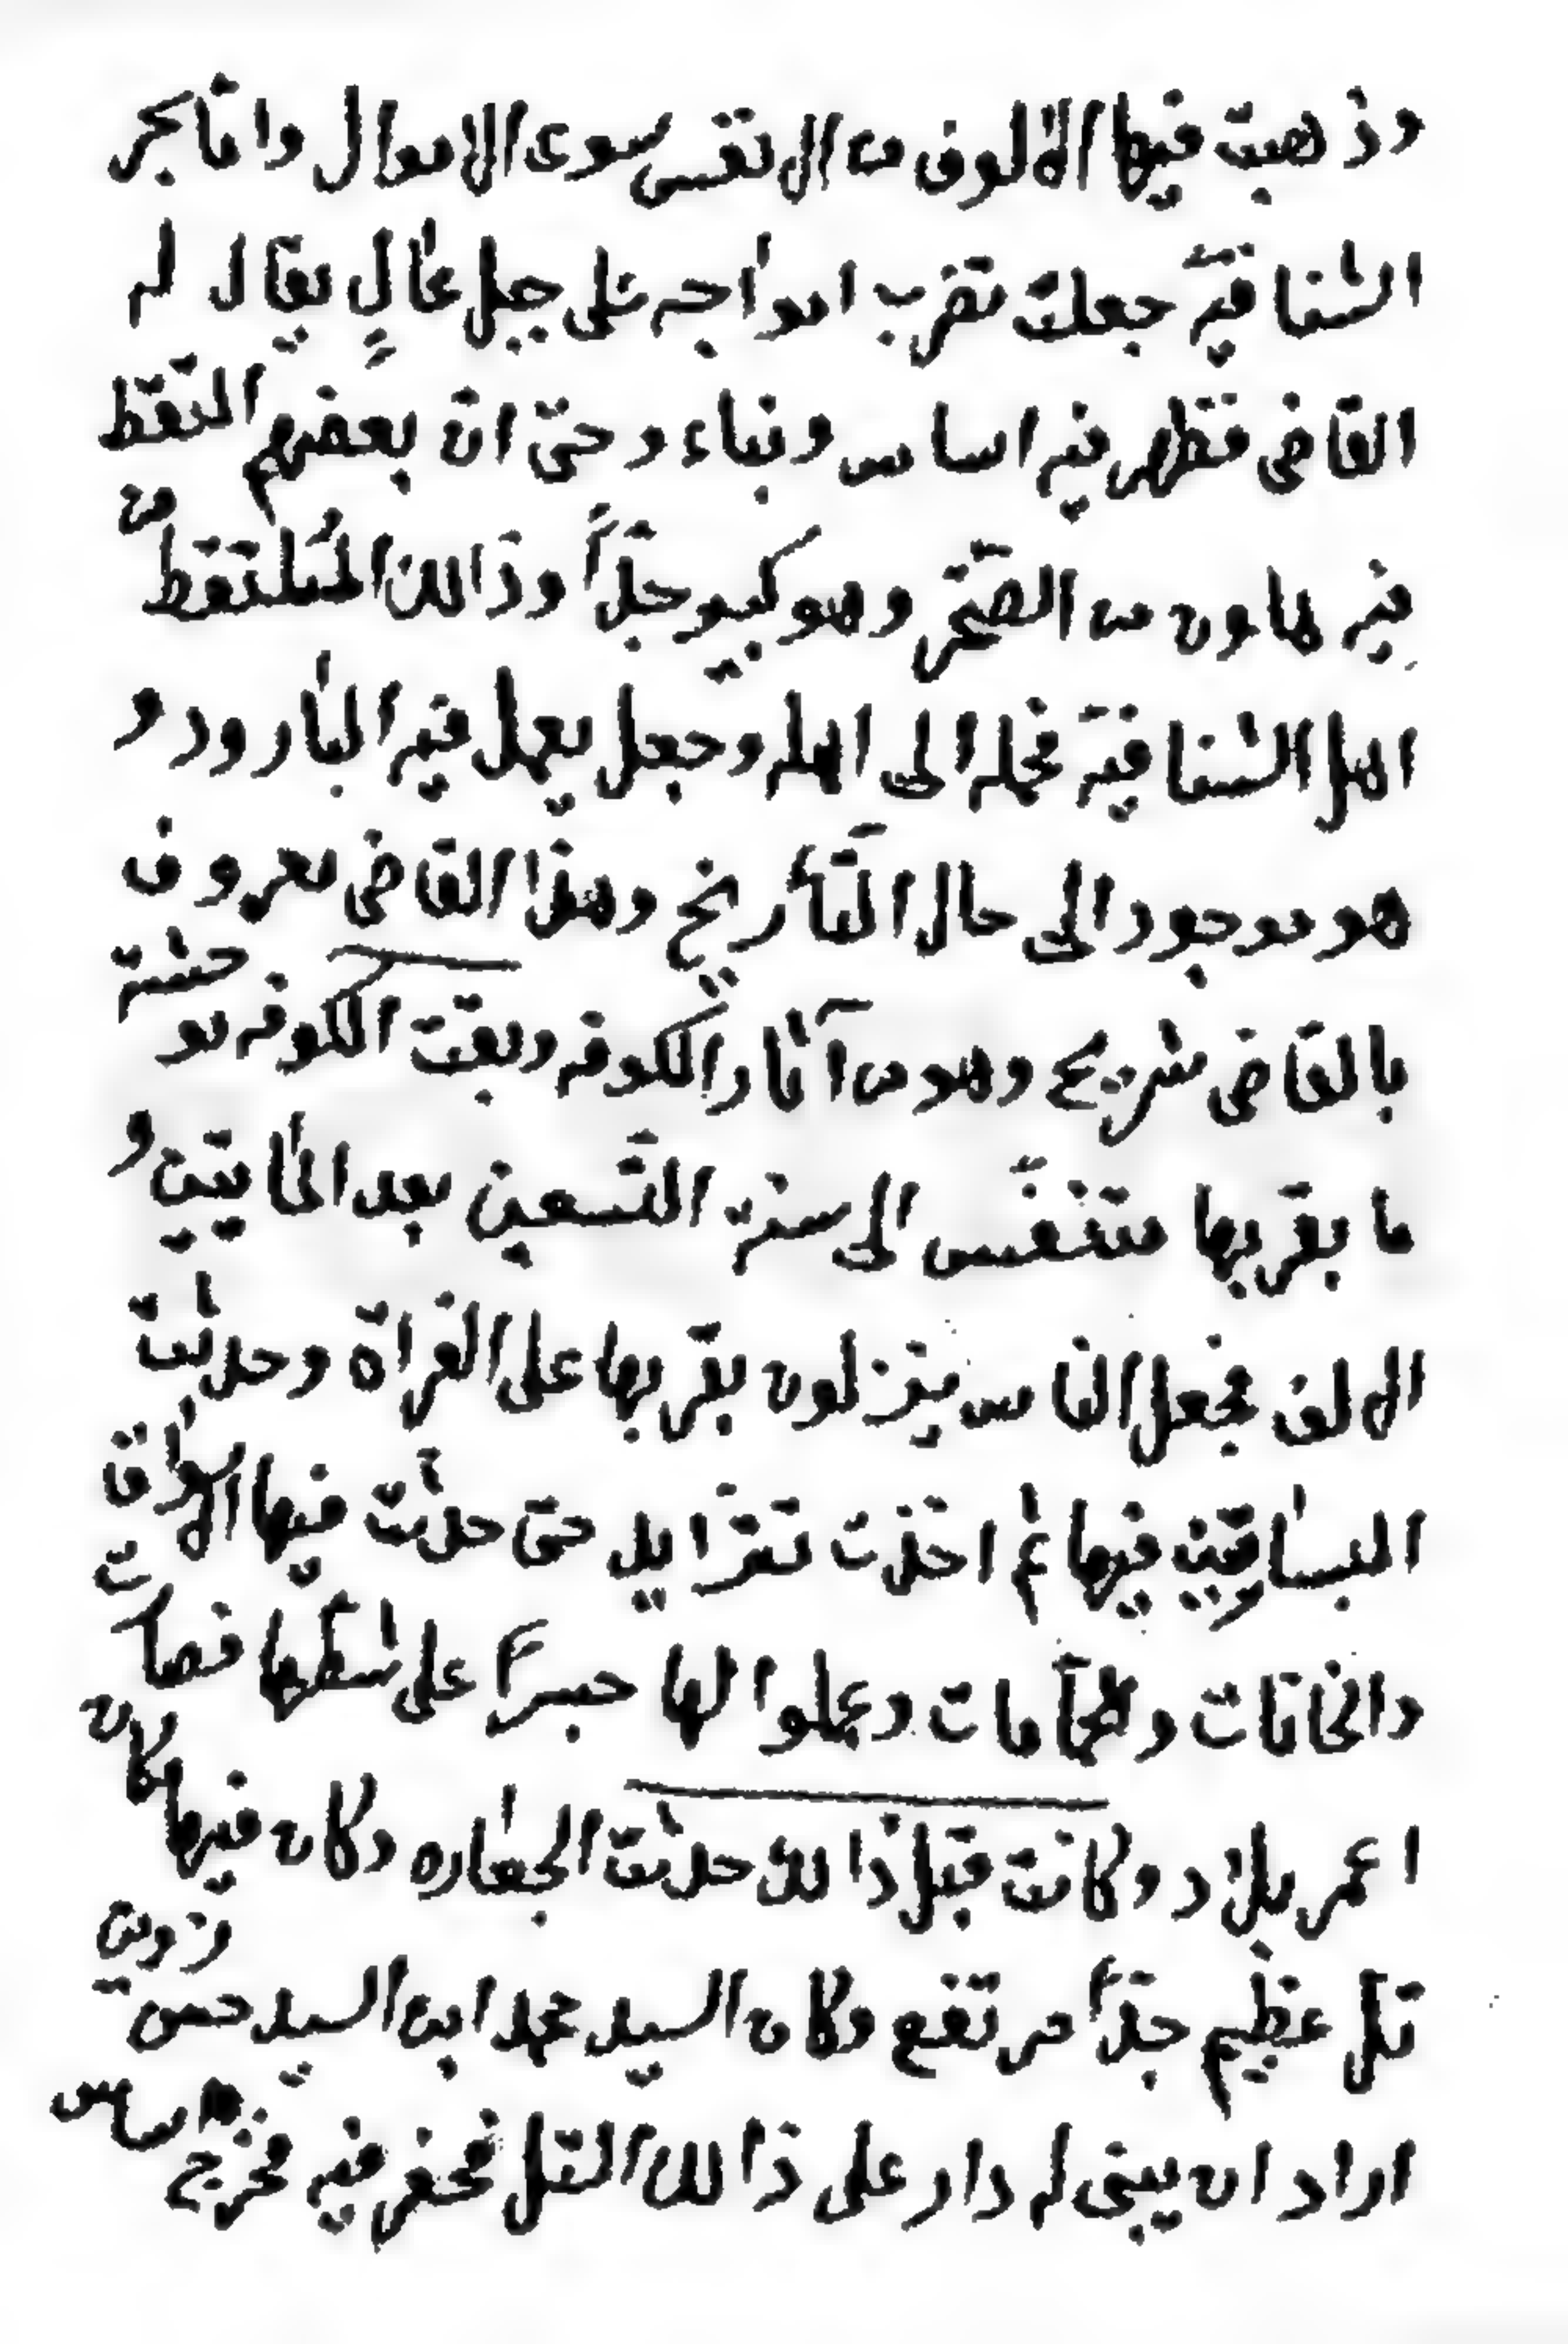 وذهبت فيها الالوف من الانفس سوى الاموال وانا بحر
الشنافيّة جعلت تضرب امواجه على جبل عالٍ يقال له
القاضي فظهر فيه اساس وبناء وحتى ان بعضهم التقط
فيه هاون من الصّخر وهو كبير جدّاً وذالك المُلتقط من
اهل الشنافية فحمله الى اهله وجعل يعمل فيه البارود و
هو موجود الى حال التّأريخ وهذا القاضي معروف
بالقاضي شريح وهو من آثار الكوفه وبقت الكوفه موحشة
ما بقربها متنفّس الى سنة التّسعين بعد المايتين و
الالف فجعل الناس ينزلون بقربها على الفرات وحدثت
البساتين فيها ثم اخذت تتزايد حتى حدثت فيها الاسواق
والخانات والحمّامات وعملوا لها جسراً على شطّها فصارت
اعمر بلاد وكانت قبل ذالك حدثت الجعاره وكان فيها مكان
تل عظيم جدّاً مرتفع وكان السيد محمد ابن السيد حسن زوين
اراد ان يبني له دار على ذالك التل فحفر فيه فخرج اساس